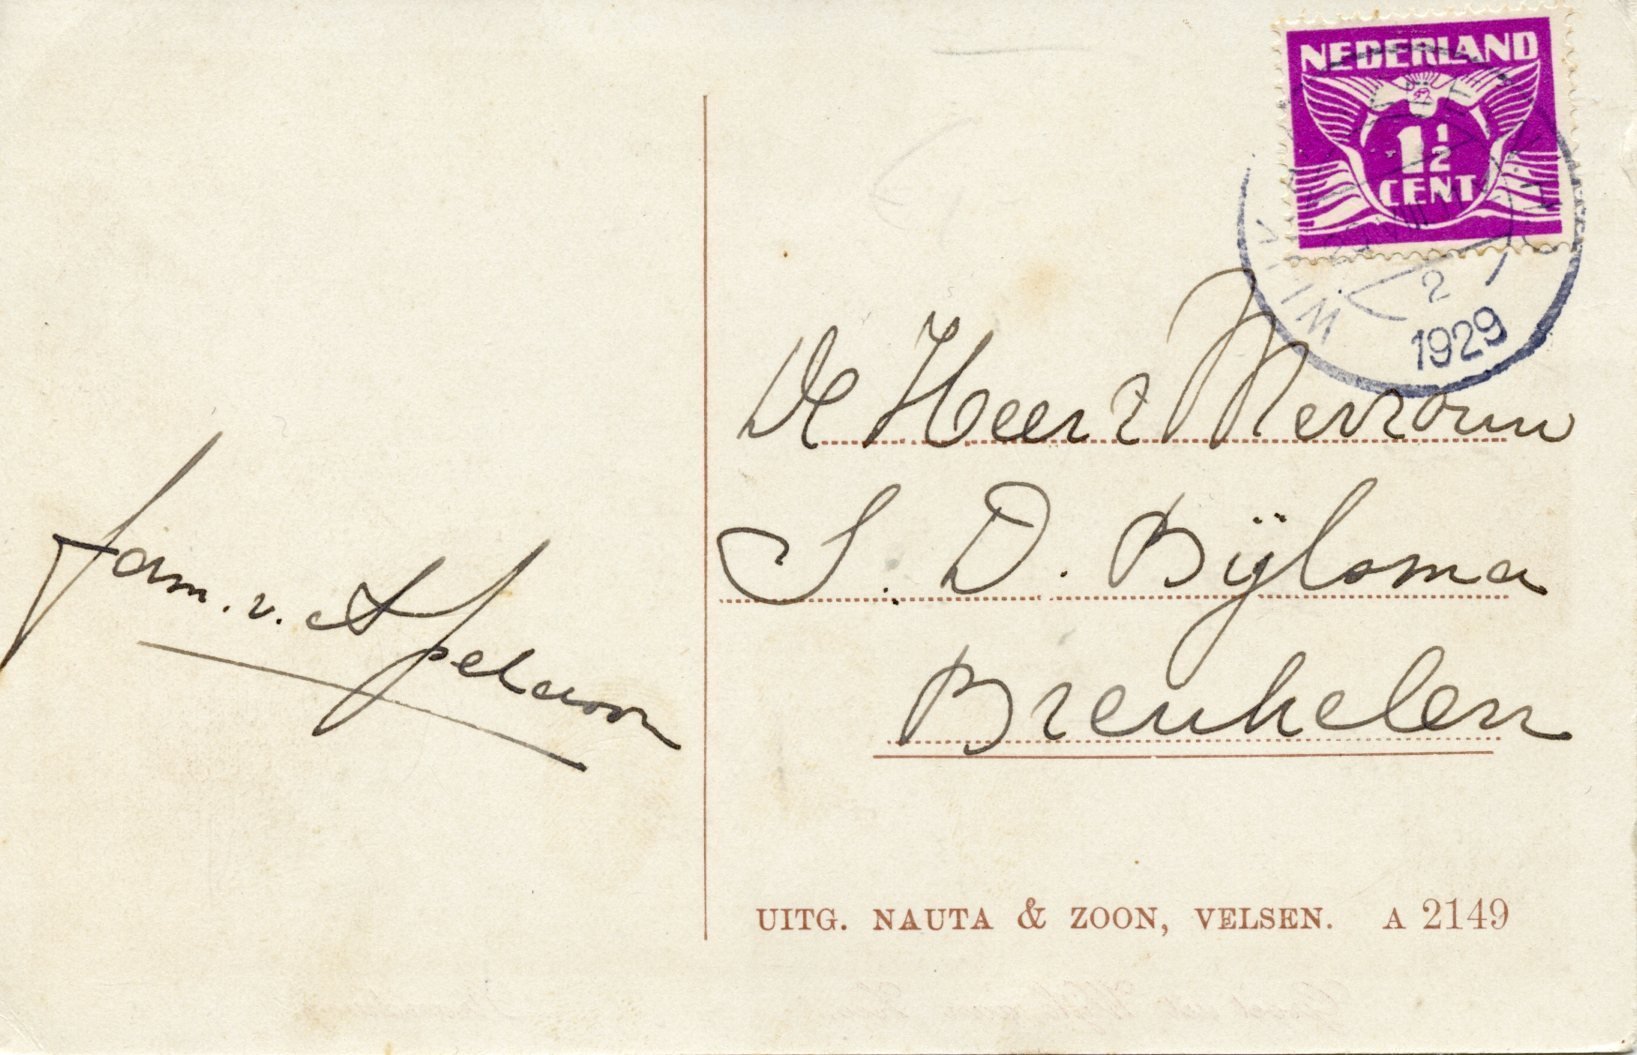 NEDERLAND
1½
CENT
2
1929
De Heer & Mevrouw
S. D. Bijlsma
Breukelen
fam. v. Apeldoorn
UITG. NAUTA & ZOON, VELSEN. A 2149